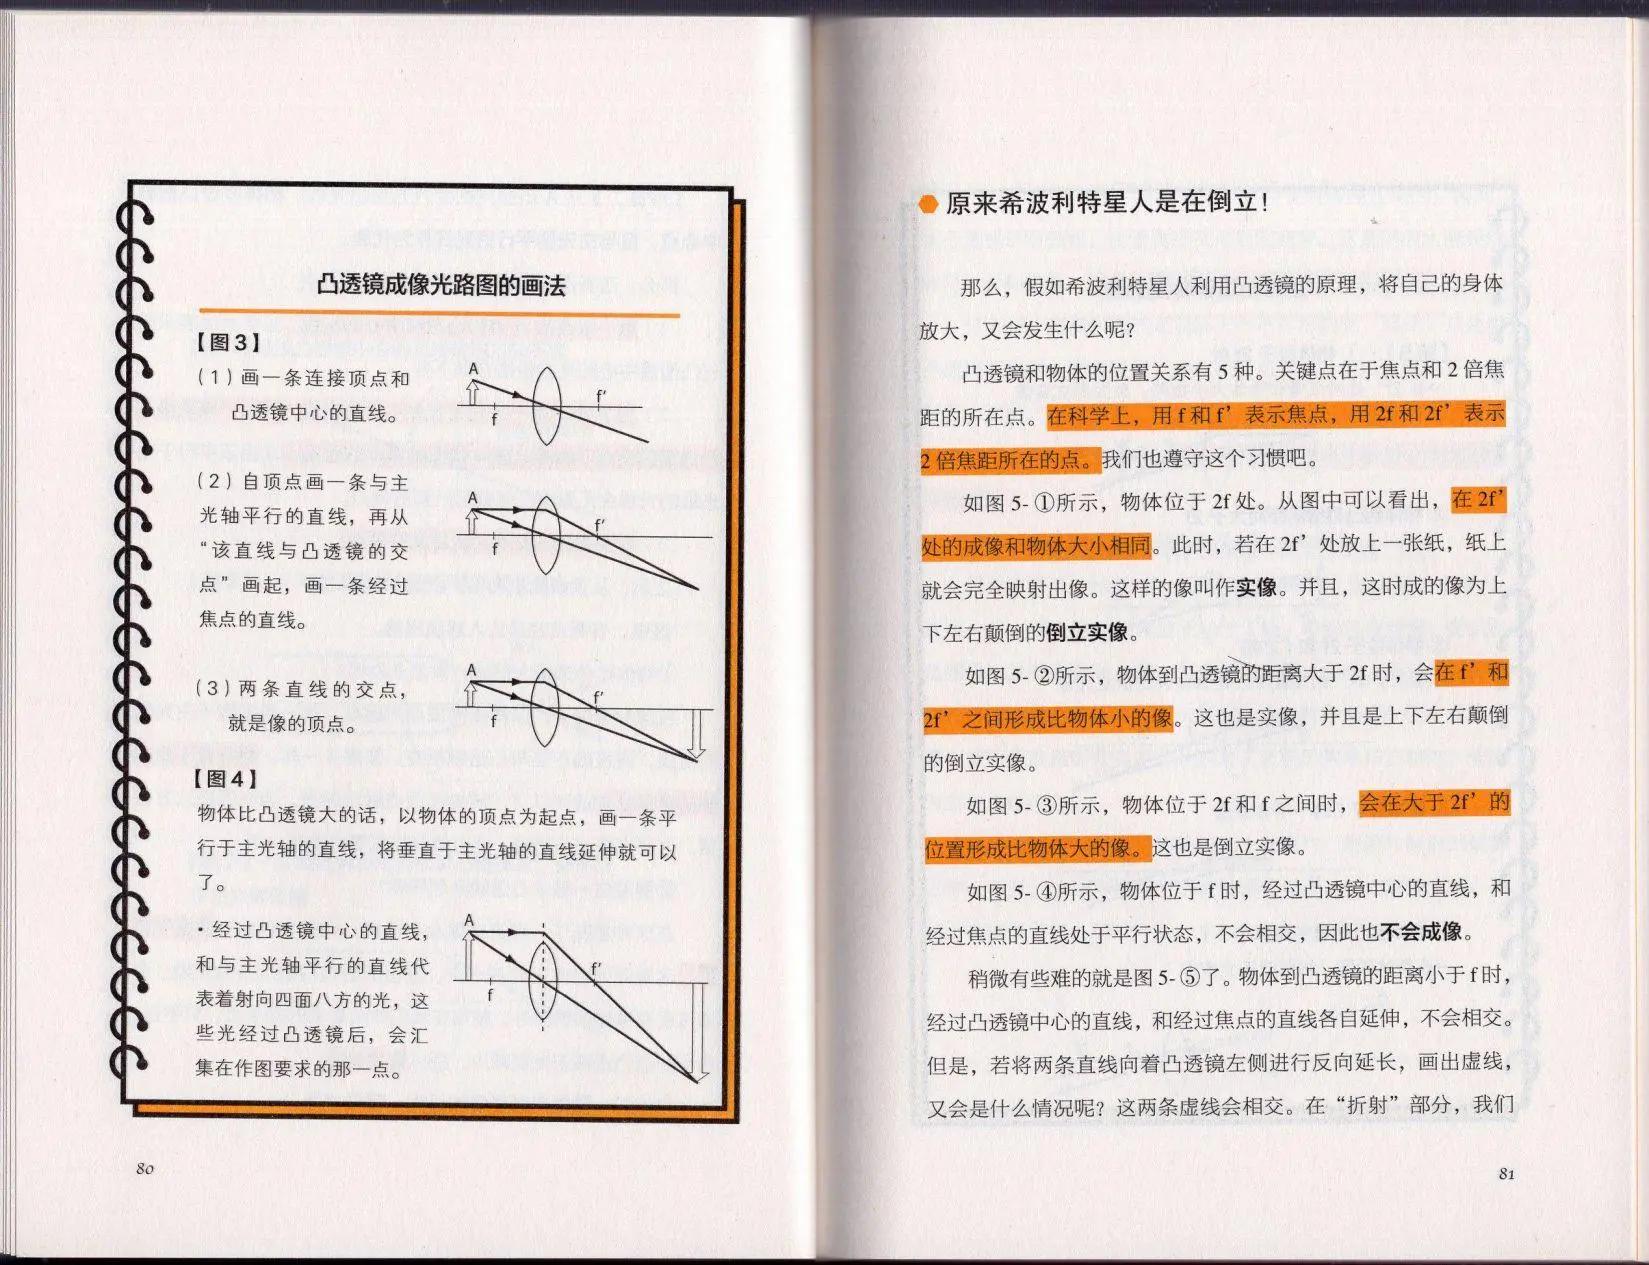 凸透镜成像光路图的画法
【图3】
（1）画一条连接顶点和
凸透镜中心的直线。
A
f
f'
（2）自顶点画一条与主
光轴平行的直线，再从
“该直线与凸透镜的交
点”画起，画一条经过
焦点的直线。
A
f
f'
（3）两条直线的交点，
就是像的顶点。
A
f
f'
【图4】
物体比凸透镜大的话，以物体的顶点为起点，画一条平
行于主光轴的直线，将垂直于主光轴的直线延伸就可以
了。
·经过凸透镜中心的直线，
和与主光轴平行的直线代
表着射向四面八方的光，这
些光经过凸透镜后，会汇
集在作图要求的那一点。
A
f
f'
80
原来希波利特星人是在倒立！
那么，假如希波利特星人利用凸透镜的原理，将自己的身体
放大，又会发生什么呢？
凸透镜和物体的位置关系有 5 种。关键点在于焦点和 2 倍焦
距的所在点。在科学上，用 f 和 f’ 表示焦点，用 2f 和 2f’ 表示
2 倍焦距所在的点。我们也遵守这个习惯吧。
如图 5- ①所示，物体位于 2f 处。从图中可以看出，在 2f’
处的成像和物体大小相同。此时，若在 2f’ 处放上一张纸，纸上
就会完全映射出像。这样的像叫作实像。并且，这时成的像为上
下左右颠倒的倒立实像。
如图 5- ②所示，物体到凸透镜的距离大于 2f 时，会在 f’ 和
2f’ 之间形成比物体小的像。这也是实像，并且是上下左右颠倒
的倒立实像。
如图 5- ③所示，物体位于 2f 和 f 之间时，会在大于 2f’ 的
位置形成比物体大的像。这也是倒立实像。
如图 5- ④所示，物体位于 f 时，经过凸透镜中心的直线，和
经过焦点的直线处于平行状态，不会相交，因此也不会成像。
稍微有些难的就是图 5- ⑤了。物体到凸透镜的距离小于 f 时，
经过凸透镜中心的直线，和经过焦点的直线各自延伸，不会相交。
但是，若将两条直线向着凸透镜左侧进行反向延长，画出虚线，
又会是什么情况呢？这两条虚线会相交。在“折射”部分，我们
81